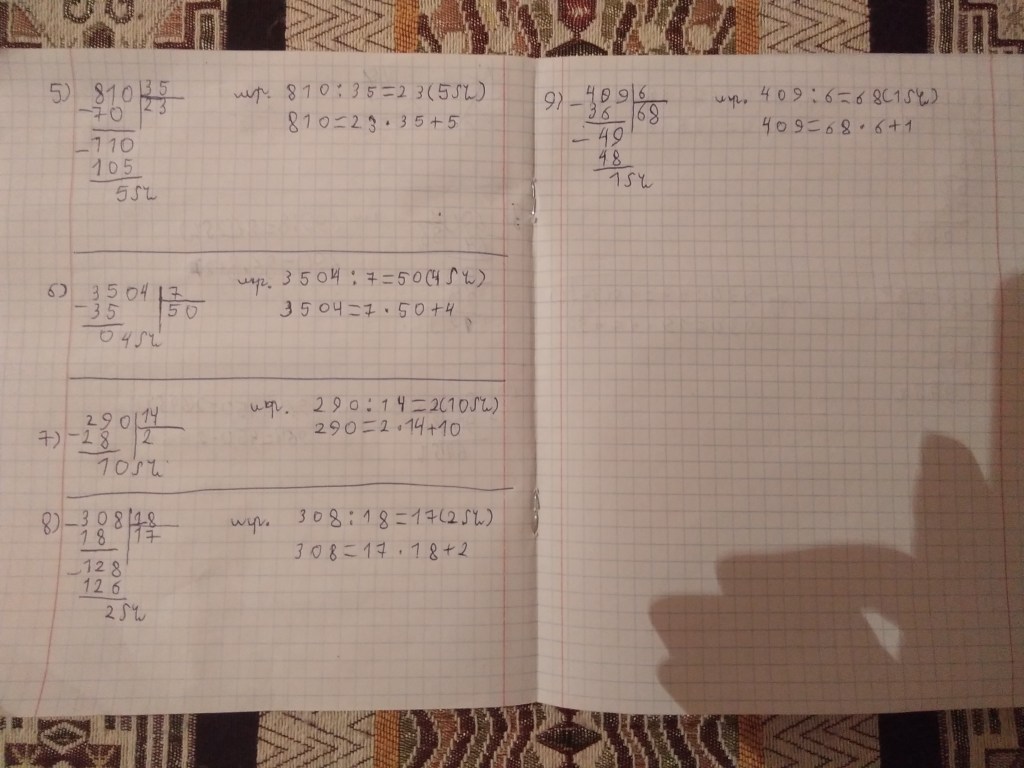 5) 810 35
70 23
110
105
5
810:35=23(5)
810=23·35+5
6) 3504 7
35 50
04
3504:7=50(4)
3504=7·50+4
7) 290 14
28 2
10
290:14=2(10)
290=2·14+10
8) 308 18
18 17
128
126
2
308:18=17(2)
308=17·18+2
9) 409 6
36 68
49
48
1
409:6=68(1)
409=68·6+1